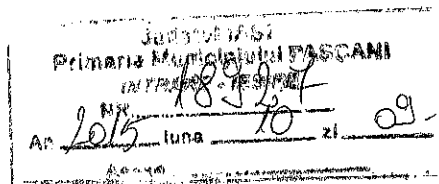 Județul IAȘI
Primaria Municipiului PASCANI
INTRARE - IESIRE
NR. 18927
An 2015 luna 10 zi 09